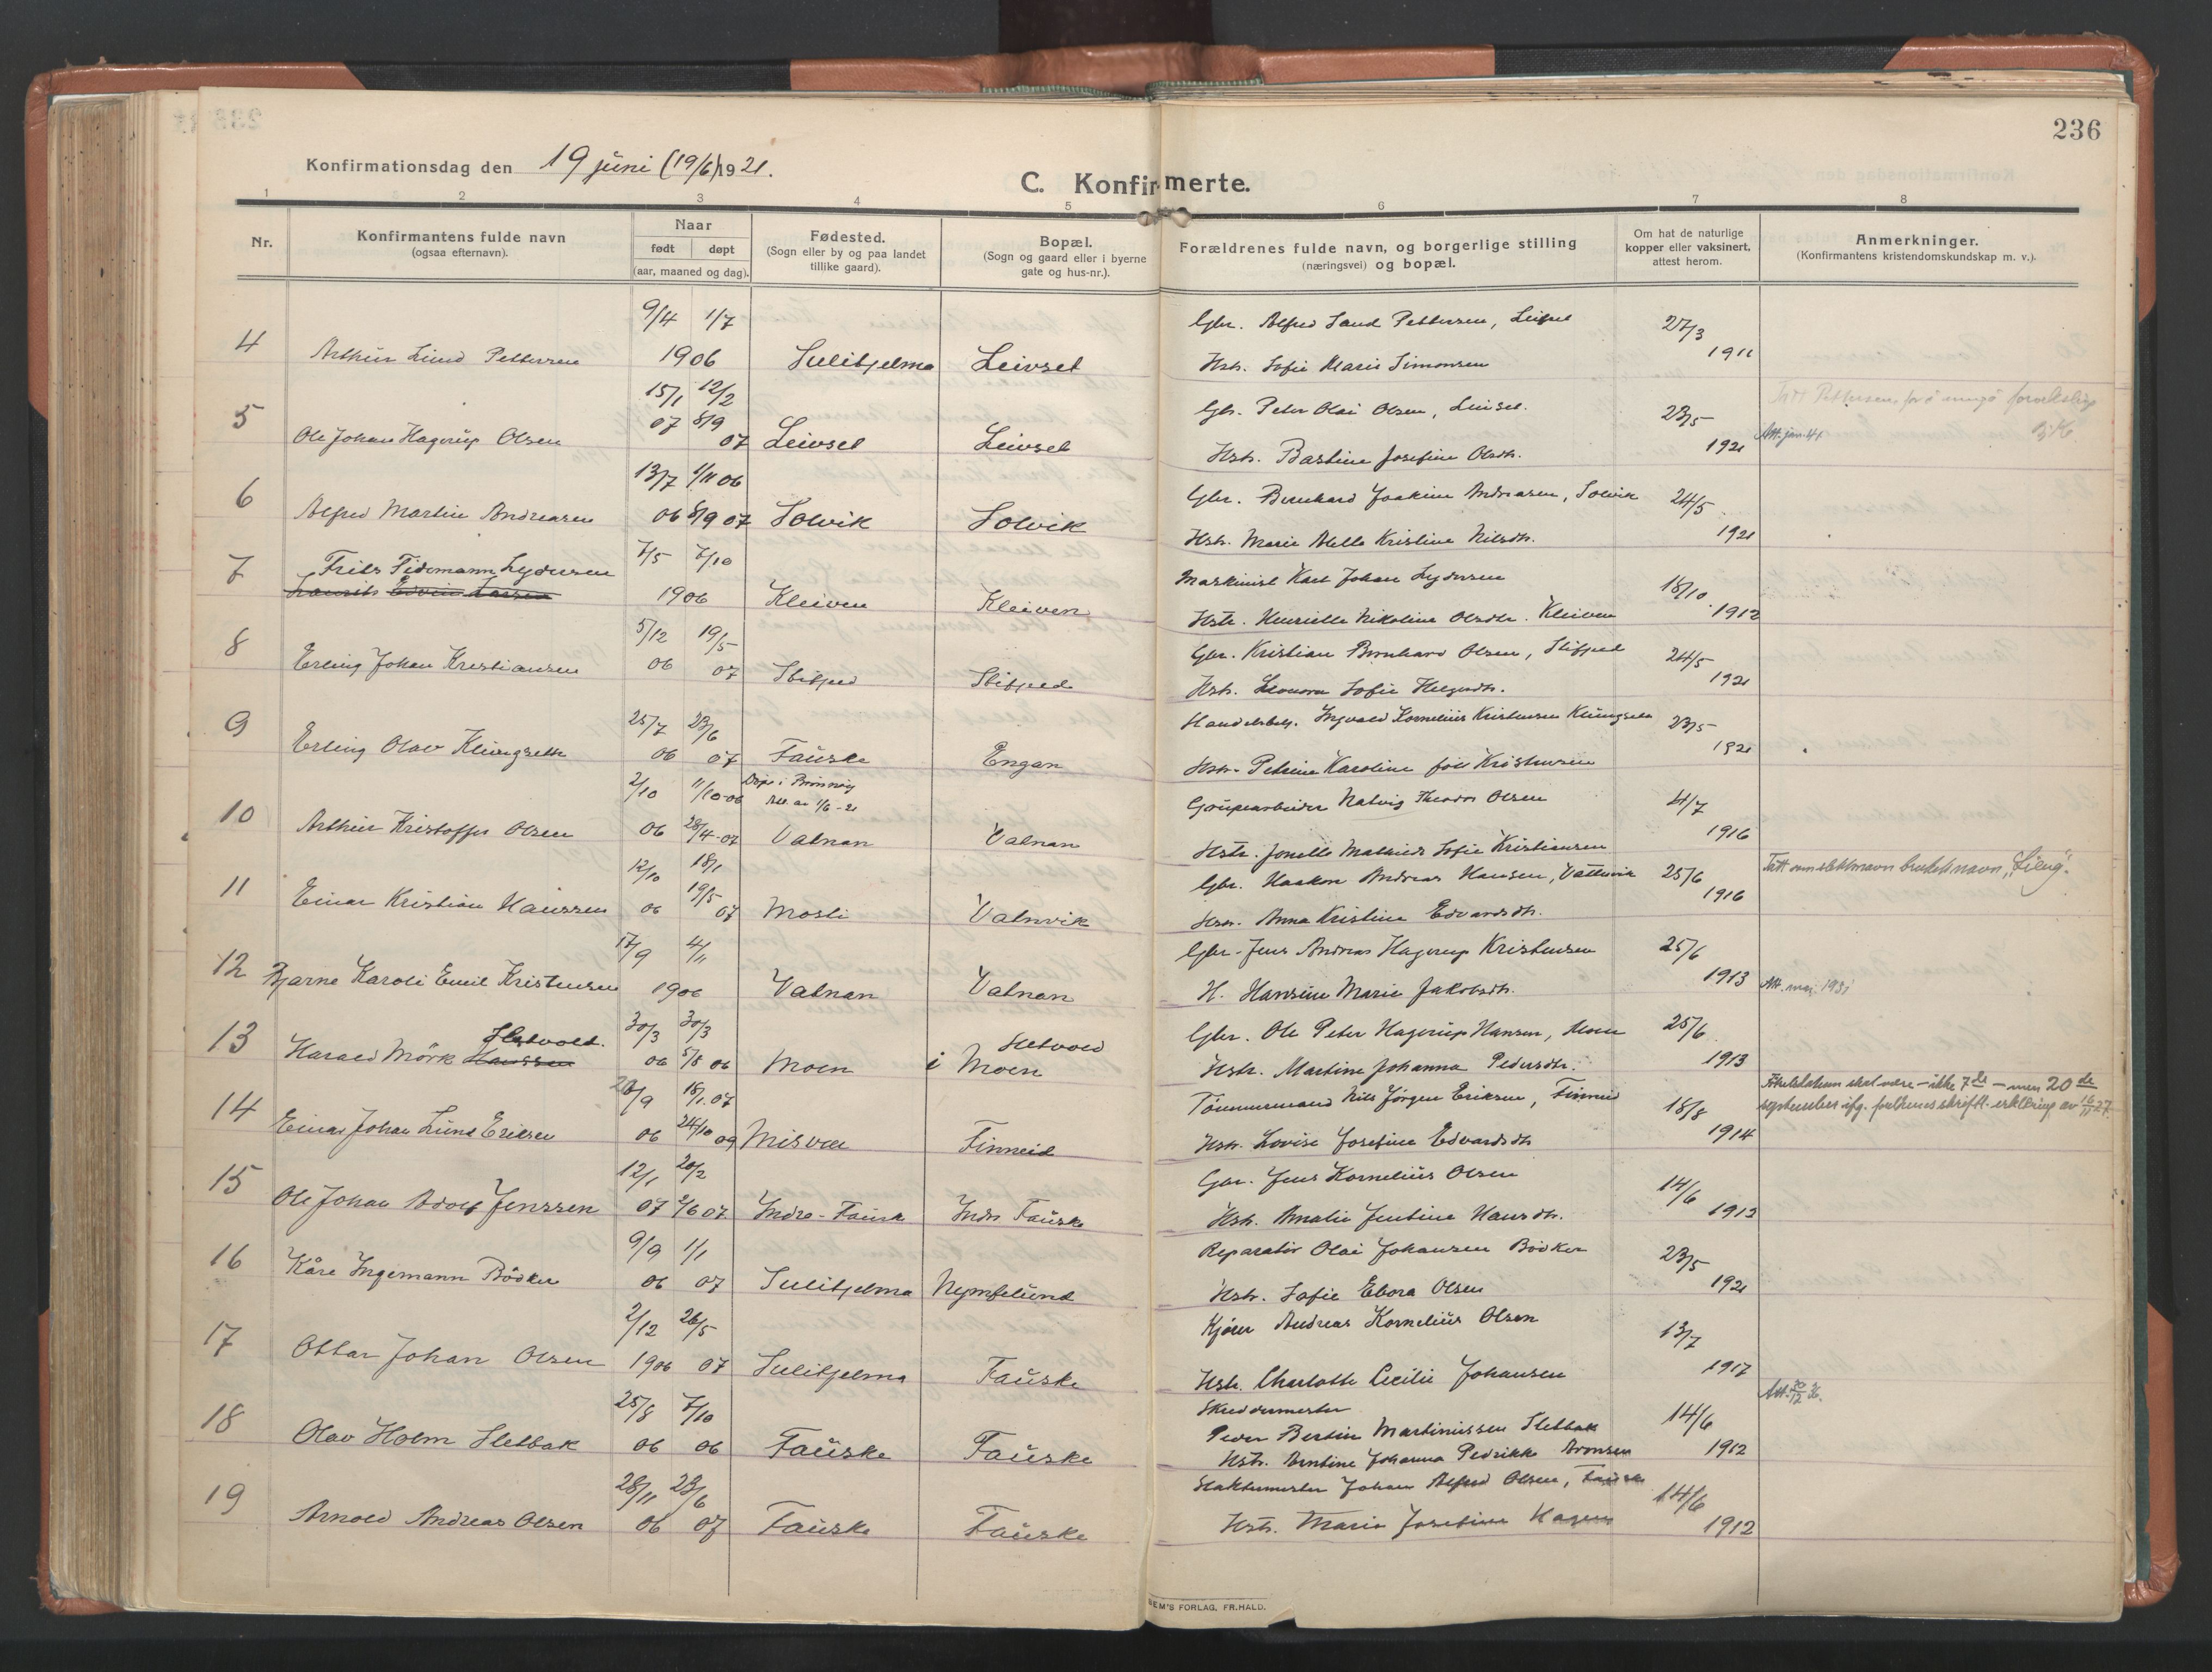 236
Konfirmationsdag den 19 juni (19/6) 1921.
C. Konfirmerte.
1 2 3 4 5 6 7 8
Nr.
Konfirmantens fulde navn
(ogsaa efternavn).
Naar
født døpt
(aar, maaned og dag).
Fødested.
(Sogn eller by og paa landet
tillike gaard).
Bopæl.
(Sogn og gaard eller i byerne
gate og hus-nr.).
Forældrenes fulde navn, og borgerlige stilling
(næringsvei) og bopæl.
Om hat de naturlige
kopper eller vaksinert,
attest herom.
Anmerkninger.
(Konfirmantens kristendomskundskap m. v.).
9/4 1/7 Gbr. Alfred Lund Pettersen, 27/3
4 Arthur Lund Pettersen 1906 Sulitjelma Leivset Hstr. Sofie Marie Simonsen 1911
15/1 12/2 Gbr. Peter Olai Olsen, Leivset. 23/5
5 Ole Johan Hagerup Olsen 07 8/9 07 Leivset Leivset Hstr. Bastine Josefine Olsdtr. 1921 Att. jan. 41
13/7 1/11 06 Gbr. Bernhard Joakim Andreasen, Solvik 24/5
6 Alfred Martin Andreasen 06 8/9 07 Solvik Solvik Hstr. Marie Kristine Nilsdtr. 1921
7 Frits Tidemann Lydersen 7/5 7/10 Maskinist Karl Johan Lydersen 18/10
Laurits Edvin Larsen 1906 Kleiven Kleiven Hstr. Henriette Nikoline Olsdtr. Kleiven 1912
5/12 19/5 Gbr. Kristian Bernhard Olsen, 24/5
8 Erling Johan Kristiansen 06 07 Hstr. Leonora Sofie 1921
25/7 23/6 Handelsbetj. Ingvald Kornelius Kristensen Klungseth 23/5
9 Erling Olav Klungseth 06 07 Fauske Engan Hstr. Petrine Karoline født Kristensen 1921
2/10 11/10-06 Døpt i Brønnøy
Att. av 1/6-21
Grupearbeider Theodor Olsen 4/7
10 Arthur Kristoffer Olsen 06 28/4-07 Vatnan Vatnan Hstr. Mathilde Sofie Kristiansen 1916
12/10 18/1 Gbr. Haakon Andreas Hansen, Vatnvik 25/6 Tatt som slektsnavn bruksnavn,
11 Einar Kristian Hanssen 06 19/5 07 Mosti Vatnvik Hstr. Anna Kristine Edvardsdtr. 1916
17/9 4/11 Gbr. Jens Andreas Hagerup Kristensen 25/6
12 Bjarne Karoli Emil Kristensen 1906 Vatnan Vatnan H. Hansine Marie Jakobsdtr. 1913 Att. mai 1931
Sletvold. 30/3 30/3 Sletvold Gbr. Ole Peter Hagerup Hansen, Moen 25/6
13 Harald Mörk Hanssen 06 5/8 06 Moen i Moen Hstr. Martine Johanna Pedersdtr. 1913
20/9 18/1 07 Tömmermand Nils Jörgen Eriksen, Finneid 18/8 Fødselsdatum skal være - ikke 7de - men 20de
14 Einar Johan Lund Eriksen 06 24/10 09 Misvær Finneid Hstr. Lovise Josefine Edvardsdtr 1914 september ifg. foreldrenes skriftl. erklæring av 16/11 27.
12/1 20/2 Gbr. Jens Kornelius Olsen 14/6
15 Ole Johan Adolf Jenssen 07 2/6 07 Indre-Fauske Indre Fauske Hstr. Amalie Jentine Hansdtr. 1913
9/9 1/1 Reparatör Olai Johansen Bödker 23/5
16 Kåre Ingemann Bödker 06 07 Sulitjelma Nymfelund Hstr. Sofie Ebora Olsen 1921
2/12 26/5 Kjörer Andreas Kornelius Olsen 13/7
17 Ottar Johan Olsen 1906 07 Sulitjelma Fauske Hstr. Charlotte Cecilie Johansen 1917
25/8 7/10 Skreddermester
Peder Bertin Martinussen Sletbak 14/6 Att. 30/12
18 Olav Holm Sletbak 06 06 Fauske Fauske Hstr. Arntine Johanna Pedrikke Aronsen 1912
28/11 23/6 Slaktermester Johan Alfred Olsen, Fauske 14/6
19 Arnold Andreas Olsen 06 07 Fauske Fauske Hstr. Marie Josefine 1912
SEM'S FORLAG, FR.HALD.